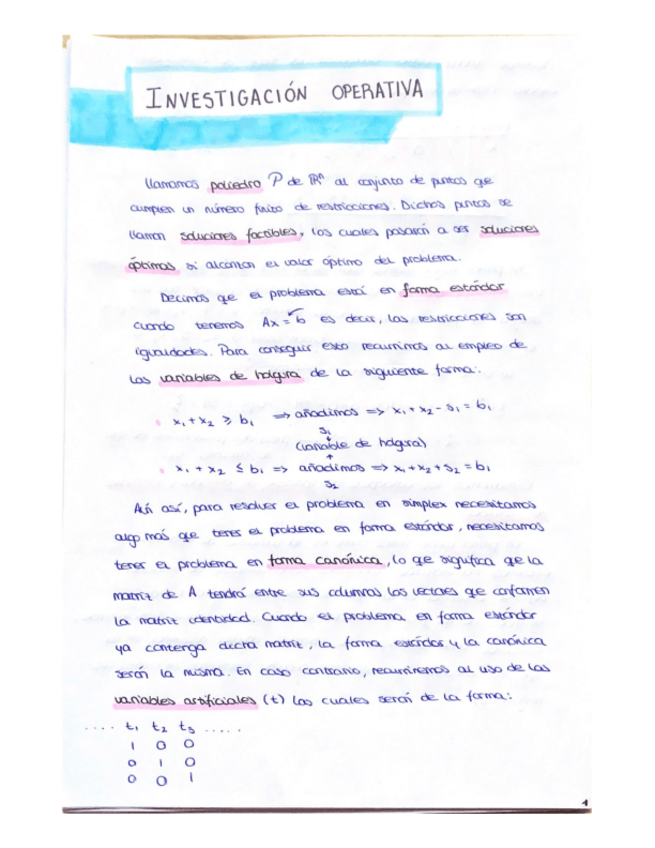 INVESTIGACIÓN OPERATIVA
llamamos poliedro P de ℝⁿ al conjunto de puntos que
cumplen un número finito de restricciones. Dichos puntos se
llaman soluciones factibles, los cuales pasarán a ser soluciones
óptimas si alcanzan el valor óptimo del problema.
Decimos que el problema está en forma estándar
cuando tenemos Ax = b es decir, las restricciones son
igualdades. Para conseguir esto recurrimos al empleo de
las variables de holgura de la siguiente forma:
x₁ + x₂ ≥ b₁ ⇒ añadimos ⇒ x₁ + x₂ - s₁ = b₁
s₁
(variable de holgura)
x₁ + x₂ ≤ b₁ ⇒ añadimos ⇒ x₁ + x₂ + s₂ = b₁
s₂
Aún así, para resolver el problema en simplex necesitamos
algo más que tener el problema en forma estándar, necesitamos
tener el problema en forma canónica, lo que significa que la
matriz de A tendrá entre sus columnas los vectores que conforman
la matriz identidad. Cuando el problema en forma estándar
ya contenga dicha matriz, la forma estándar y la canónica
serán la misma. En caso contrario, recurriremos al uso de las
variables artificiales (t) las cuales serán de la forma:
.... t₁ t₂ t₃ .....
1 0 0
0 1 0
0 0 1
1